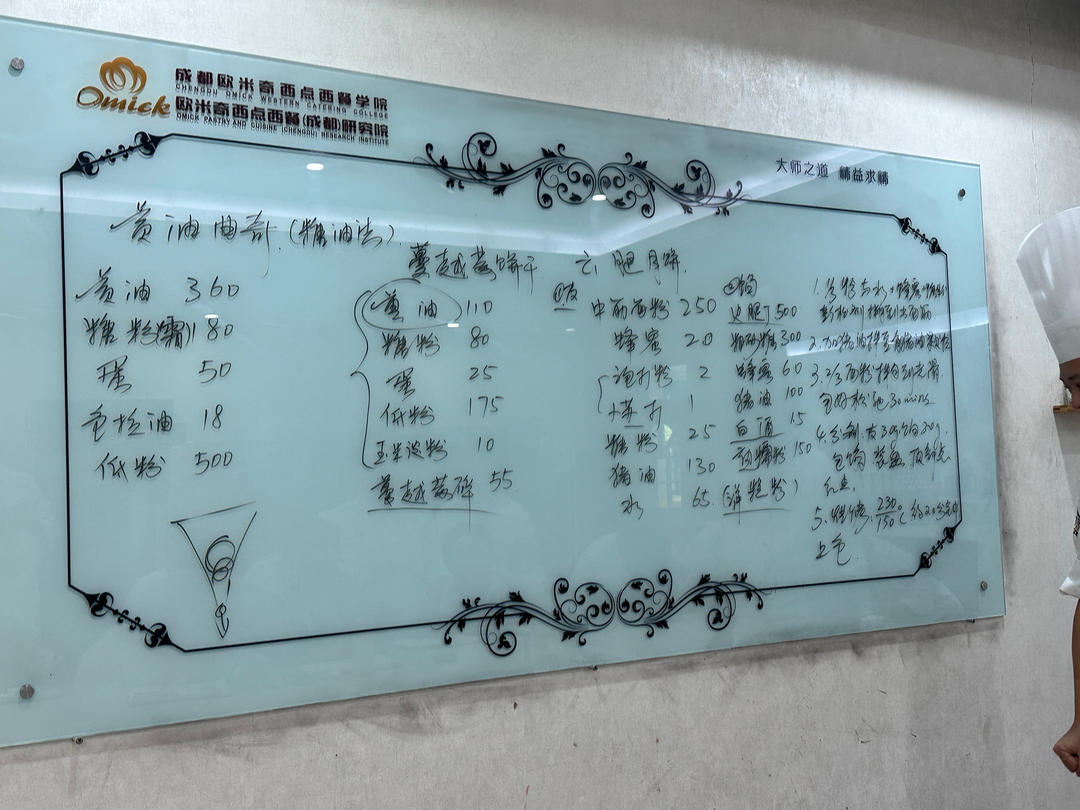 Omick
成都欧米奇西点西餐学院
CHENGDU OMICK WESTERN CATERING COLLEGE
欧米奇西点西餐(成都)研究院
OMICK PASTRY AND CUISINE (CHENGDU) RESEARCH INSTITUTE
大师之道 精益求精
黄油曲奇.(糖油法)
黄油 360
糖粉(霜) 180
蛋 50
色拉油 18
低粉 500
蔓越莓饼干
黄油 110
糖粉 80
蛋 25
低粉 175
玉米淀粉 10
蔓越莓碎 55
云腿月饼.
①皮
中筋面粉 250
蜂蜜 20
泡打粉 2
小苏打 1
糖粉 25
猪油 130
水 65.
②馅
火腿丁 500
粗砂糖 300
蜂蜜 60
猪油 100
白酒 15
(拌粒粉)
3. 2/3面粉拌匀到光滑.
包好松弛30mins
包馅
红曲.
5. 烤烤. 230/150℃ 约20分钟
上色.